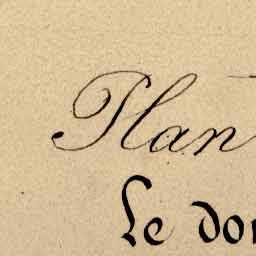 Plan
Le do